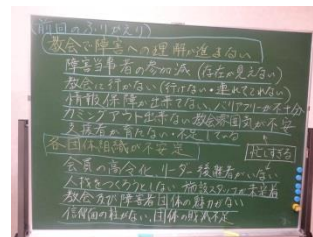 前回のふりかえり
教会で障害への理解が進まない
障害当事者の参加減(存在が見えない)
教会に行かない(行けない・連れてこれない)
情報保障が出来てない、バリアフリーが不十分
カミングアウト出来ない教会雰囲気が不安
支援者が育たない・不足している
各団体組織が不安定
忙しすぎる
会員の高令化、リーダー後継者がいない
人材をつくろうとしない 施設スタッフが未学者
教会方が障害者団体の魅力がない
信仰面の魅がない、団体の財源不足